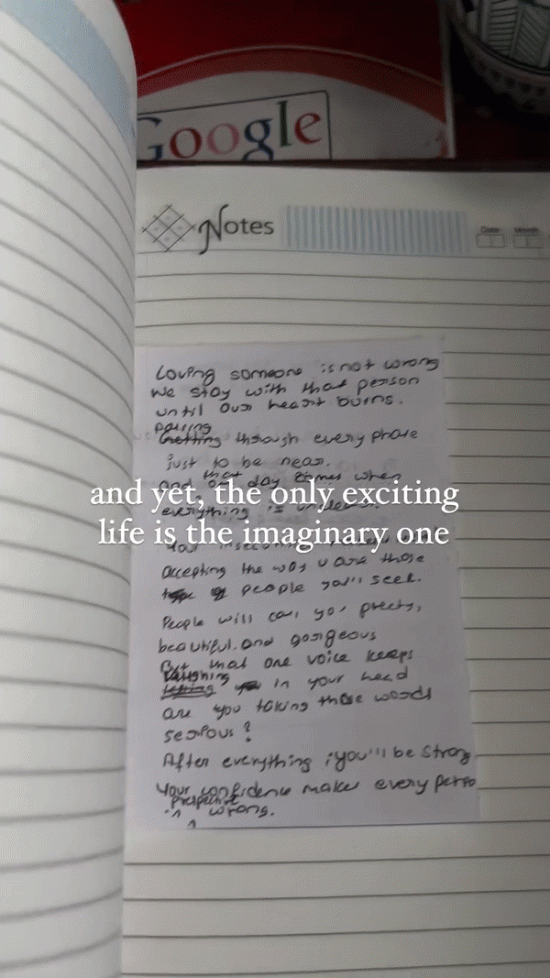 Google
Notes
Date
Month
Loving someone is not wrong
We stay with that person
until our heart burns.
passing
Getting through every phase
just to be near.
and that day comes when
everything is
and yet, the only exciting
life is the imaginary one
Your
accepting the way u are those
people you'll seek.
People will call you pretty,
beautiful. and gorgeous
But that one voice keeps
laughing
in your head
are you taking those words
serious?
After everything, you'll be strong
Your confidence makes every perso
prespective
wrong.